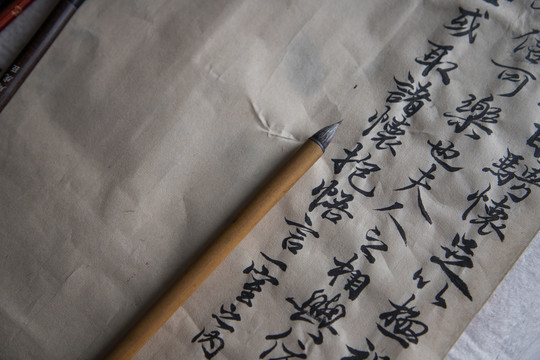 騁懷足以極
信可樂也夫人之相與俯
或取諸懷抱悟言一室之内